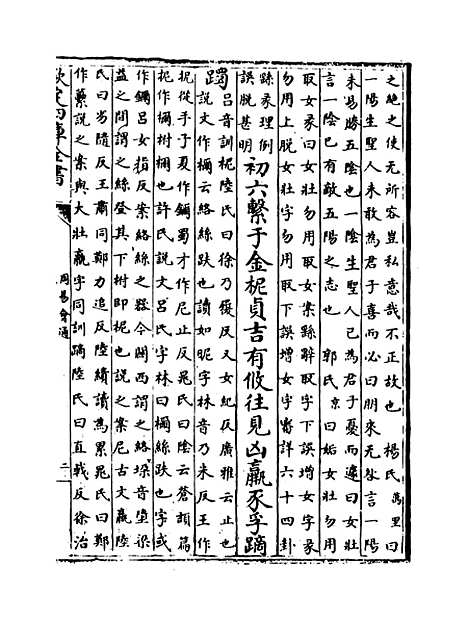 之絶之使无所容豈私意哉不正故也 楊氏萬里曰
一陽生聖人未敢為君子喜而必曰朋來无咎言一陽
未易勝五陰也一陰生聖人已為君子憂而遽曰女壯
言一陰已有敵五陽之志也 郭氏京曰姤女壯勿用
取女彖曰女壯勿用取女案繇辭取字下誤增女字彖
勿用上脱女壯字勿用取下誤增女字審詳六十四卦
繇彖理例
誤脱甚明
初六繫于金柅貞吉有攸往見凶羸豕孚蹢
躅
吕音訓柅陸氏曰徐乃履反又女紀反廣雅云止也
説文作檷云絡絲趺也讀如昵字林音乃米反王作
抳從手子夏作鑈蜀才作尼止反晁氏曰陰云蒼頡篇
抳作檷柎檷也許氏説文吕氏字林曰檷絲趺也字或
作鑈吕女指反案絡絲之器今關西謂之絡垜音堂梁
益之間謂之絲登其下柎即柅也説之案尼古文羸陸
氏曰劣隨反王肅同鄭力追反陸績讀為累晁氏曰鄭
作虆説之案與大壯羸字同訓蹢陸氏曰直戟反徐治
欽定四庫全書
周易會通
二